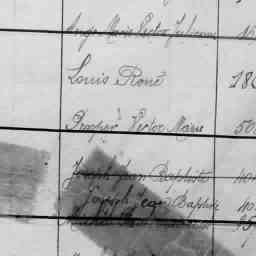 Ange Marie Victor Julienne
Louis René 180
Prosper Victor Marie 50
Joseph Jean Baptiste 40
Joseph Jean Baptiste 40